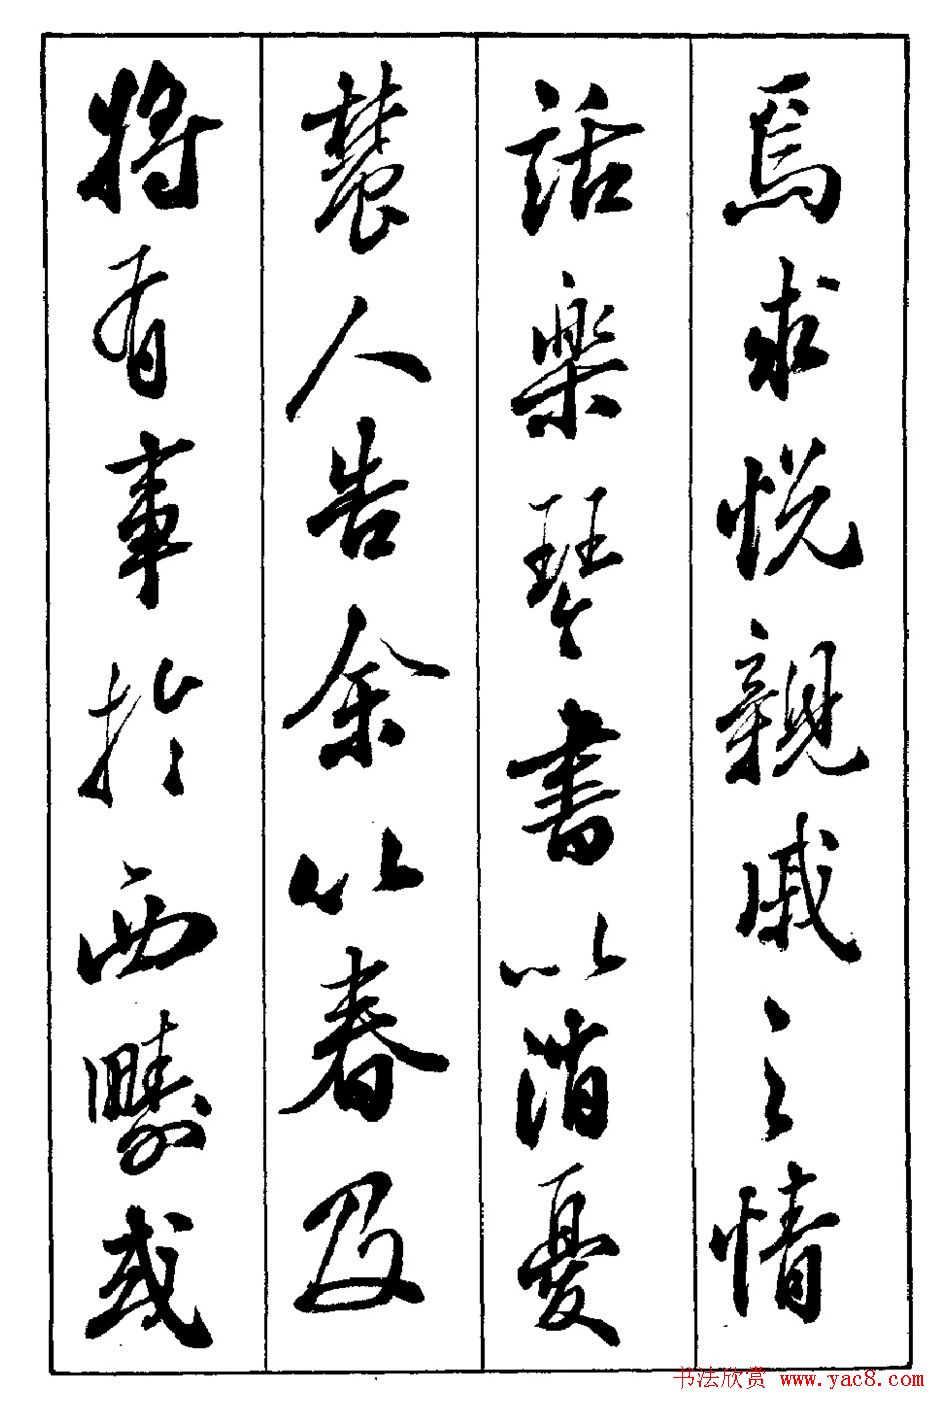 焉求悦親戚之情
話樂琴書以消憂
農人告余以春及
將有事於西疇或
书法欣赏 www.yac8.com